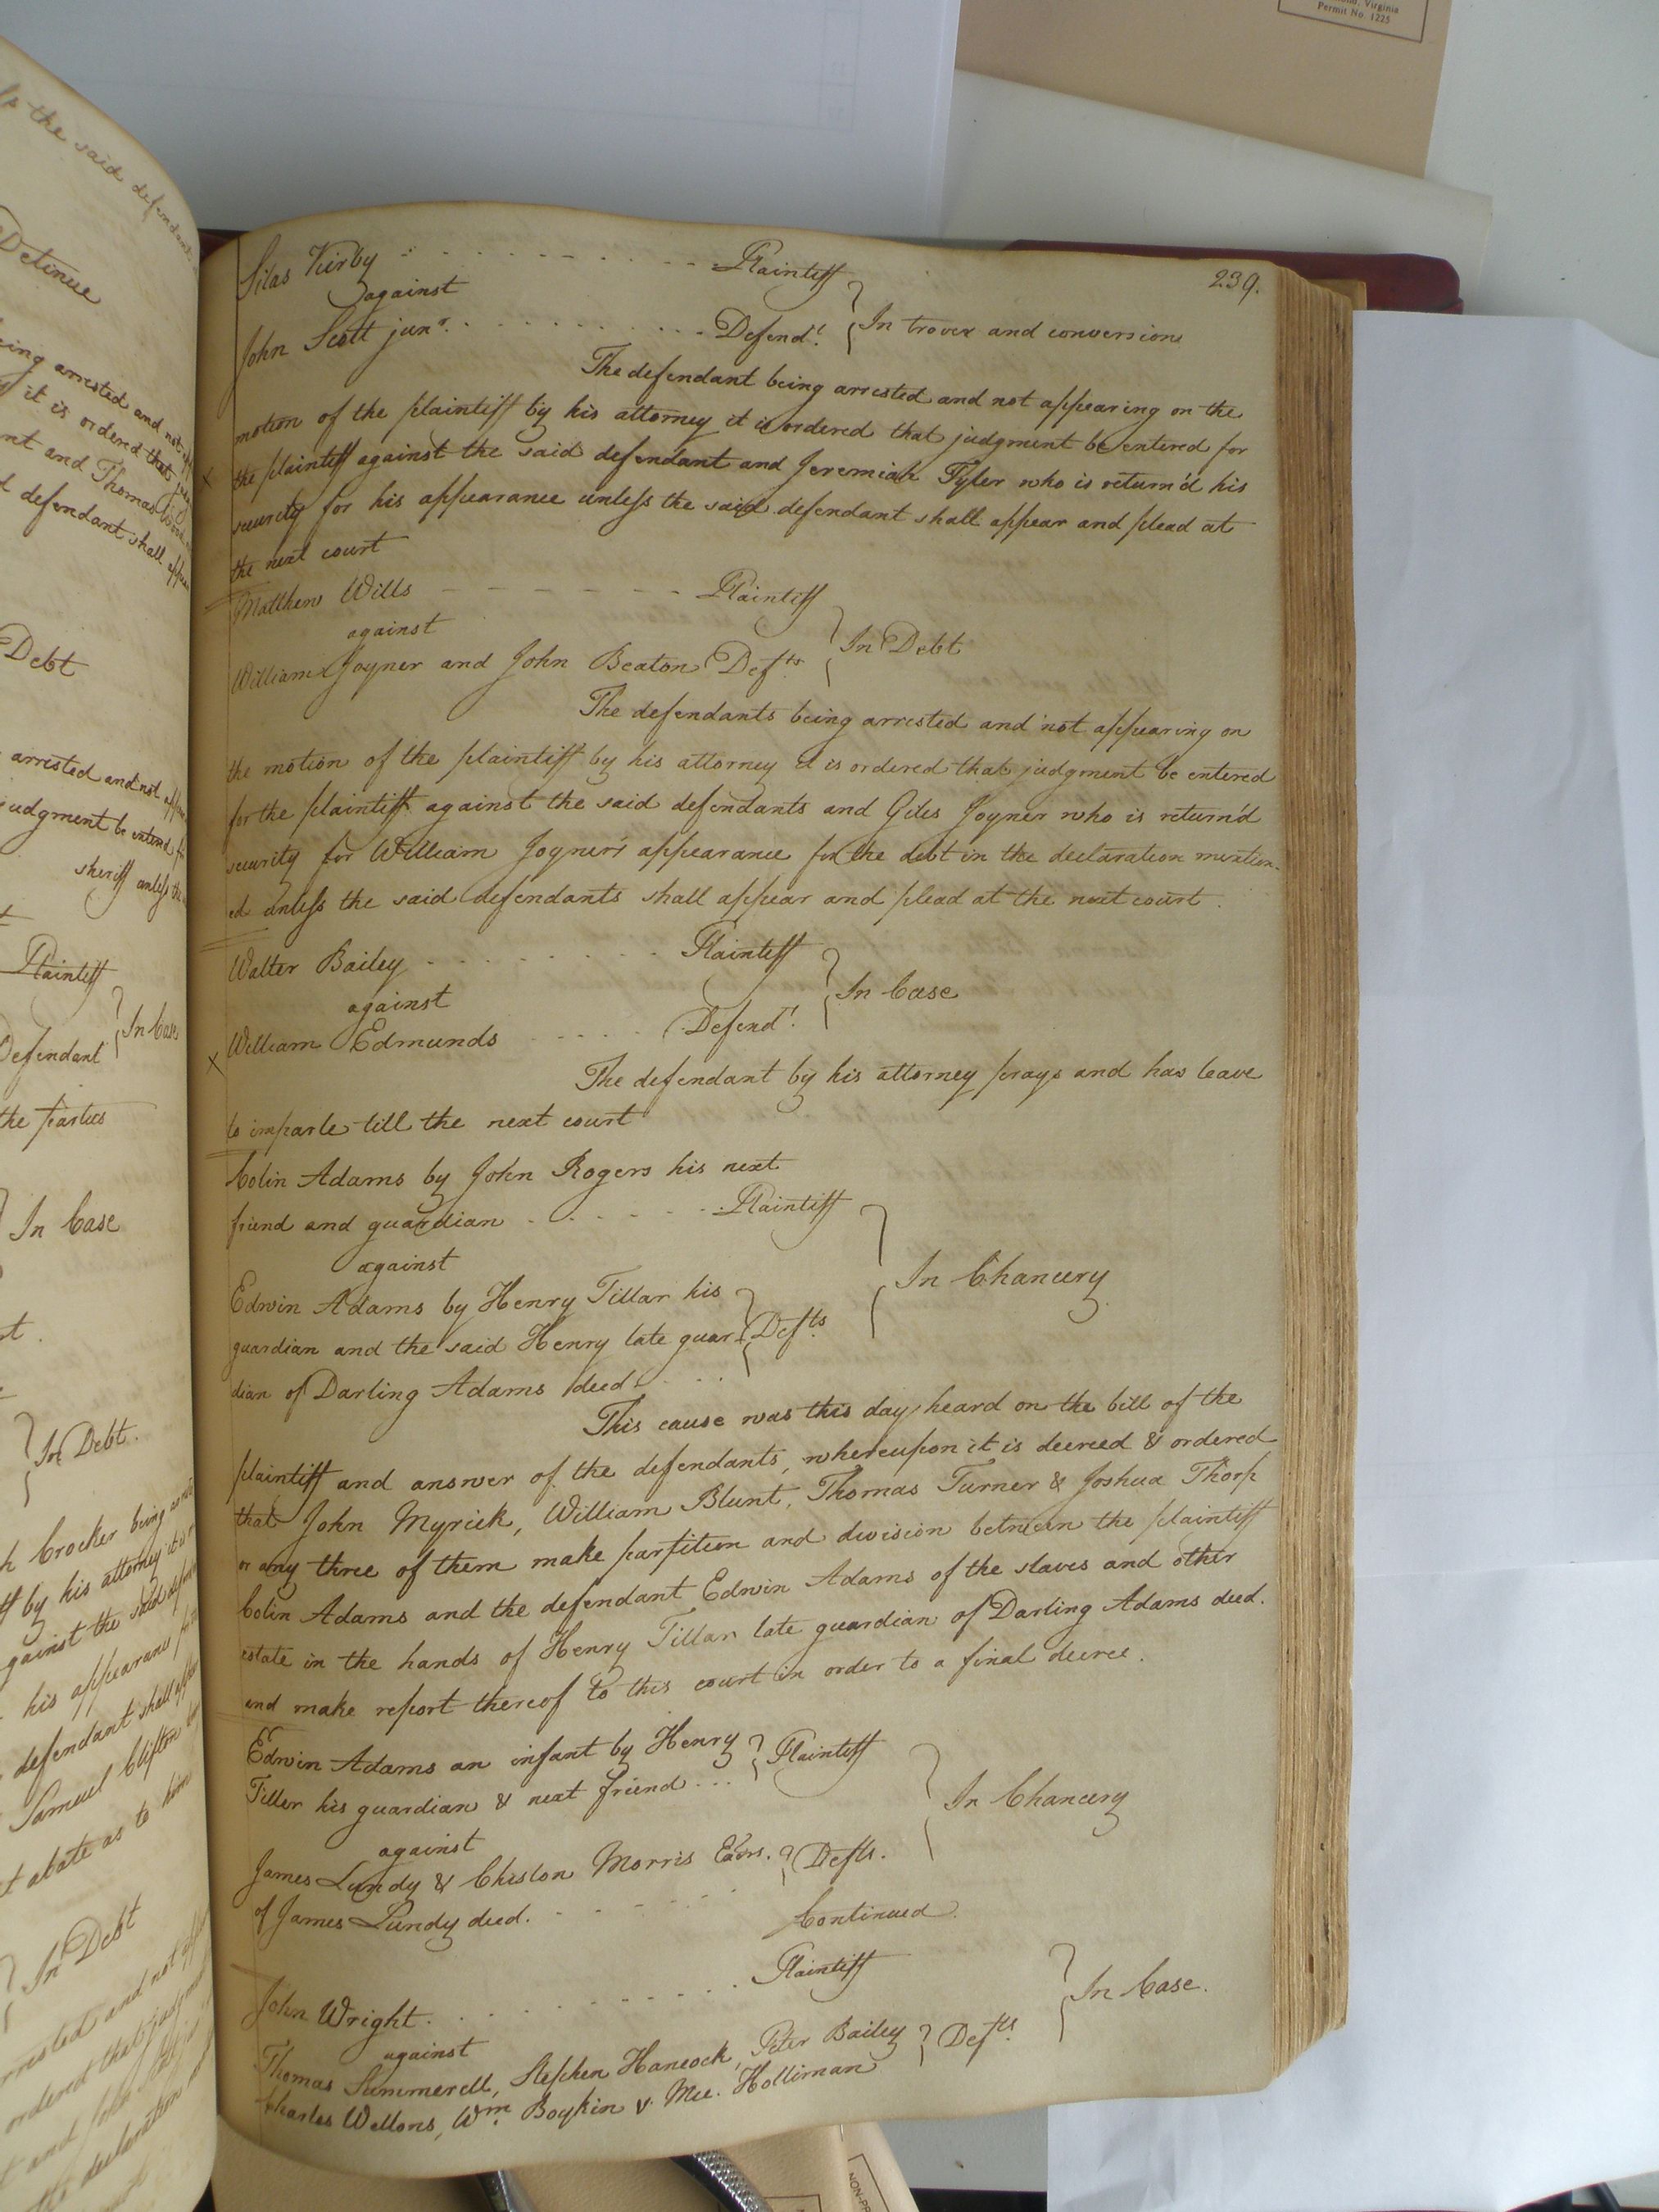 s the said defendant
Detinue
ing arrested and not
it is ordered that
nt and Thomas
d defendant shall
Debt
arrested and not
judgment be entered
sheriff unless the
Plaintiff
In Case
Defendant
the parties
In Case
In Debt.
h Crocker being
ff by his attorney it is
gainst the said
his appearance
defendant shall
Samuel Clifton
t abate as to him
In Debt
rrested and not
ordered that judgment
the declaration
Virginia
Permit No. 1225
239.
Silas Kirby Plaintiff
against
John Scott junr. Defendt. In trover and conversion
The defendant being arrested and not appearing on the
motion of the plaintiff by his attorney it is ordered that judgment be entered for
x the plaintiff against the said defendant and Jeremiah Tyler who is return'd his
security for his appearance unless the said defendant shall appear and plead at
the next court
Matthew Wills Plaintiff
against In Debt
William Joyner and John Beaton Defts.
The defendants being arrested and not appearing on
the motion of the plaintiff by his attorney it is ordered that judgment be entered
for the plaintiff against the said defendants and Giles Joyner who is return'd
security for William Joyner's appearance for the debt in the declaration mention-
ed unless the said defendants shall appear and plead at the next court.
Walter Bailey Plaintiff
against In Case
x William Edmunds Defendt.
The defendant by his attorney prays and has leave
to imparle till the next court
Colin Adams by John Rogers his next
friend and guardian Plaintiff
against In Chancery
Edwin Adams by Henry Tillar his
guardian and the said Henry late guar- Defts
dian of Darling Adams decd.
This cause was this day heard on the bill of the
plaintiff and answer of the defendants, whereupon it is decreed & ordered
that John Myrick, William Blunt, Thomas Turner & Joshua Thorp
or any three of them make partition and division between the plaintiff
Colin Adams and the defendant Edwin Adams of the slaves and other
estate in the hands of Henry Tillar late guardian of Darling Adams decd.
and make report thereof to this court in order to a final decree.
Edwin Adams an infant by Henry Plaintiff
Tiller his guardian & next friend
against In Chancery
James Lundy & Chislon Morris Exors. Defts.
of James Lundy decd.
Continued.
John Wright Plaintiff
against In Case.
Thomas Summerell, Stephen Hancock, Peter Bailey Defts.
Charles Wellons, Wm. Boykin v. Mee. Holliman